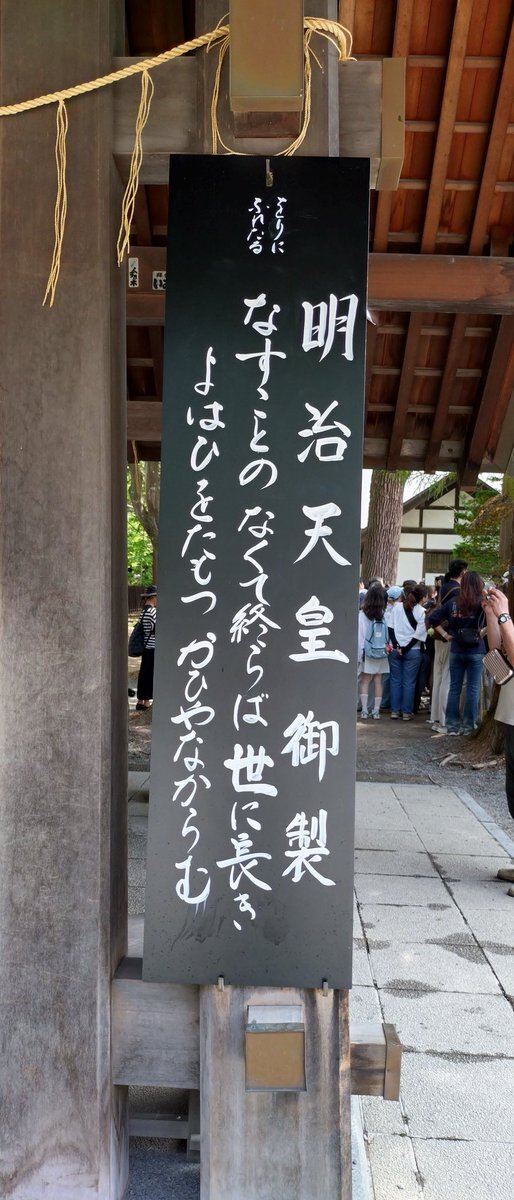 明治天皇御製
をりに
ふれたる
なすことのなくて終らば世に長き
よはひをたもつかひやなからむ